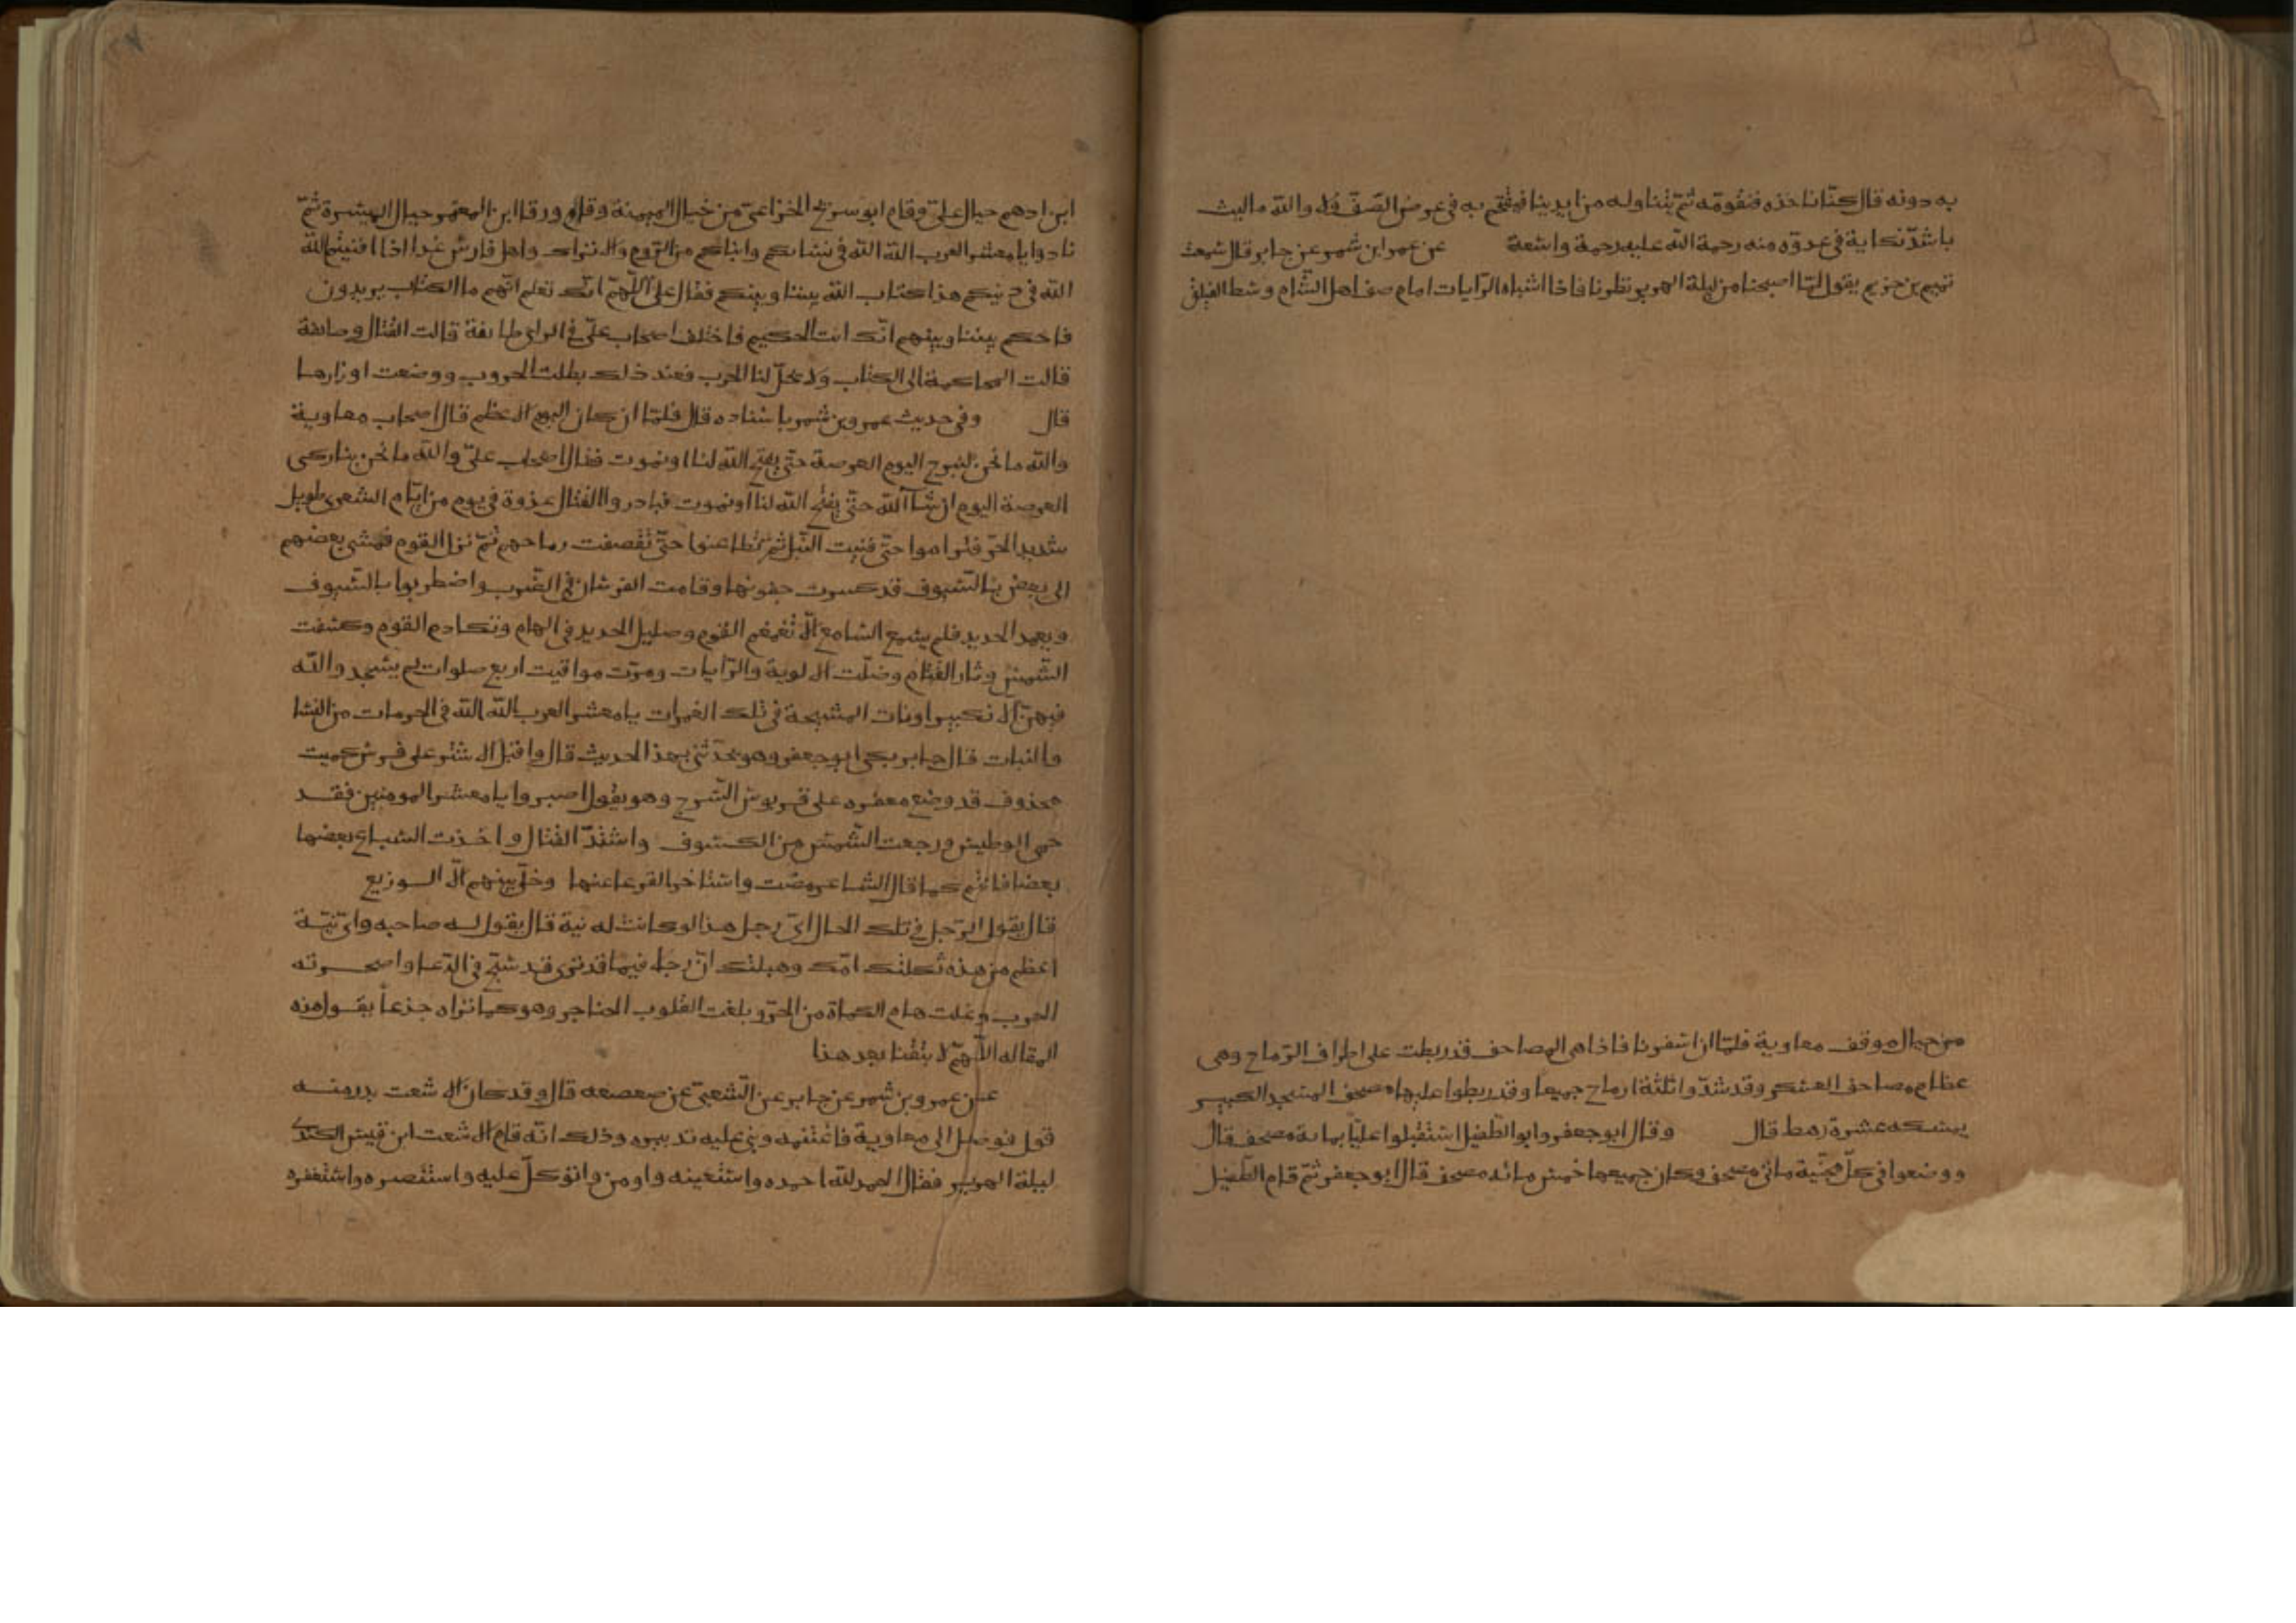 به دونه قال كنّا ناخذه فنقومّه ثمّ يتناوله من ايدينا فيقتحم به في عرض الصّفّ فلا والله ما ليث
باشدّ نكاية في عدوّه منه رحمة الله عليه رحمة واسعة عن عمر ابن شمر عن جابر قال سمعت
تميم بن حزيم يقول لمّا اصبحنا من ليلة الهرير نظرنا فاذا اشباه الرّايات امام صف اهل الشّام وسط الفيلق
من حيال موقف معاوية فلمّا ان اسفرنا فاذا هي المصاحف قد ربطت على اطراف الرّماح وهي
عظام مصاحف العسكر وقد شدّوا ثلثة ارماح جميعا وقد ربطوا عليها مصحف المسجد الكبير
يمسكه عشرة رهط قال وقال ابو جعفر وابو الطّفيل استقبلوا عليّا بماية مصحف قال
ووضعوا في كلّ مجنّبة ماتي مصحف وكان جميعها خمس مائه مصحف قال ابو جعفر ثمّ قام الطّفيل
ابن ادهم حيال عليّ وقام ابو سريح الخزاعيّ من حيال الميمنة وقام ورقا ابن المعمّر حيال الميسرة ثمّ
نادوا يا معشر العرب الله الله في نسائكم وابنائكم من الرّوم والاتراك واهل فارس غدا اذا افنيتم الله
الله في دينكم هذا كتاب الله بيننا وبينكم فقال عليّ اللّهمّ انّك تعلم انّهم ما الكتاب يريدون
فاحكم بيننا وبينهم انّك انت الحكيم فاختلف اصحاب عليّ في الراي طايفة قالت القتال وطايفة
قالت المحاكمة الى الكتاب ولا يحلّ لنا الحرب فعند ذلك بطلت الحروب ووضعت اوزارها
قال وفي حديث عمرو بن شمر باسناده قال فلمّا ان كان اليوم الاعظم قال اصحاب معاوية
والله ما نحن لنبرح اليوم العرصة حتّى يفتح الله لنا او نموت فقال اصحاب عليّ والله ما نحن بتاركي
العرصة اليوم ان شآ الله حتّى يفتح الله لنا او نموت فبادروا القتال غدوة في يوم من ايّام الشعرى طويل
شديد الحرّ فتراموا حتّى فنيت النّبل ثمّ تطاعنوا حتّى تقصفت رماحهم ثمّ نزل القوم فمشى بعضهم
الى بعض بالسّيوف قد كسرت جفونها وقامت الفرسان في الضّرب واضطربوا بالسّيوف
وبعمد الحديد فلم يسمع السّامع الّا تغمغم القوم وصليل الحديد في الهام وتكادم القوم وكسفت
الشّمس وثار القتام وضلّت الالوية والرّايات ومرّت مواقيت اربع صلوات لم يسجد والله
فيهنّ الّا تكبيرا ونادت المشيخة في تلك الغمرات يا معشر العرب الله الله في الحرمات من النسا
والبنات قال جابر بكى ابو جعفر وهو يحدّثني بهذا الحديث قال واقبل الاشتر على فرس كميت
محذوف قد وضع مغفره على قربوس السّرج وهو يقول اصبروا يا معشر المومنين فقد
حمي الوطيس ورجعت الشّمس من الكسوف واشتدّ القتال واخذت السباع بعضها
بعضا فانتم كما قال الشاعر مضت واستاخر القرعا عنها وخلّي بينهم الّا الوزيع
قال يقول الرّجل في تلك الحال ايّ رجل هذا لو كانت له نية قال يقول له صاحبه وايّ نيّة
اعظم من هذه ثكلتك امّك وهبلتك انّ رجلا فيما قد ترى قد سبح في الدّما واضجرته
الحرب وغلت هام الكماة من الحرّ وبلغت القلوب الحناجر وهو كما تراه جذعاً يقول هذه
المقاله اللّهمّ لا تبقنا بعد هذا
عن عمرو بن شمر عن جابر عن الشّعبيّ عن صعصعه قال وقد كان الاشعث بدر منه
قول فوصل الى معاوية فاغتنمه وبنى عليه تدبيره وذلك انّه قام الاشعث ابن قيس الكندي
ليلة الهرير فقال الحمد لله احمده واستعينه واومن واتوكّل عليه واستنصره واستغفره